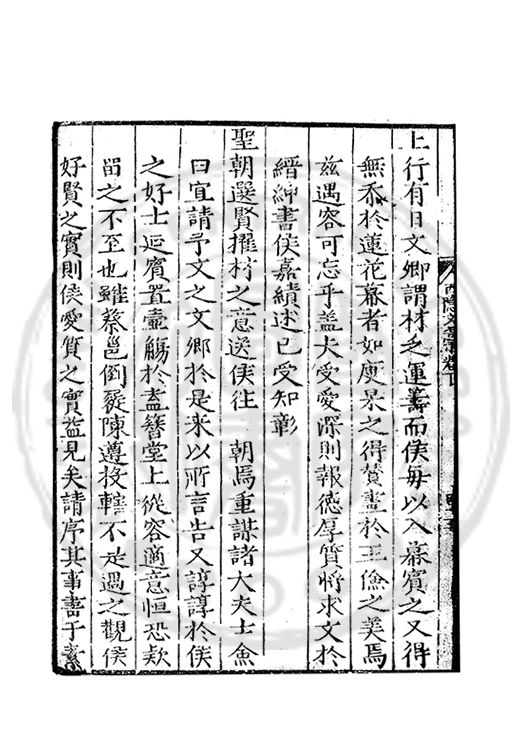 上行有日文卿謂材乏運籌而侯每以入幕賓之又得
無忝於蓮花幕者如庾杲之得贊畫於王儉之美焉
玆遇容可忘乎蓋夫受愛深則報德厚質將求文於
縉紳書侯嘉績述己受知彰
聖朝選賢擢材之意送侯往 朝焉重謀諸大夫士僉
曰宜請予文之文卿於是來以所言告又諄諄於侯
之好士延賓置壷觴於盍簪堂上從容適意恒恐欵
留之不至也雖蔡邕倒屣陳遵投轄不是過之觀侯
好賢之實則侯愛質之實益見矣請序其事書于素